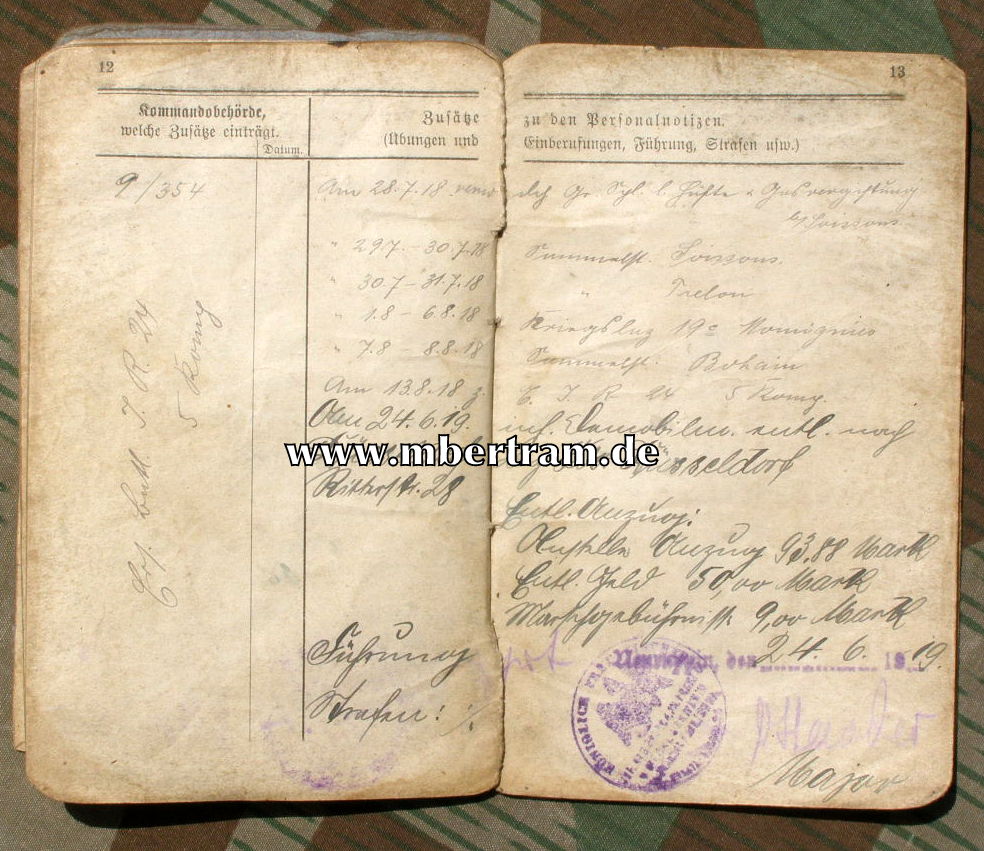 12
Kommandobehörde,
welche Zusätze einträgt.
Datum.
Zusätze
(Übungen und
13
zu den Personalnotizen.
Einberufungen, Führung, Strafen usw.)
9/354
Am 28.7.18 verw. dch Gr. Spl. l. Hüfte u. Gasvergiftung
b/Soissons.
" 29.7. – 30.7.18 Sammelst. Soissons.
" 30.7 – 31.7.18 " Trelon
" 1.8 – 6.8.18 Kriegslaz 19 Momignies
" 7.8 – 8.8.18 Sammelst. Bohain
Am 13.8.18 z. E. J. R. 24 5 Komp.
Ers. Batl. J. R. 24
5 Komp
Am 24.6.19. inf. Demobilm. entl. nach
Düsseldorf
Ritterstr. 28
Entl. Anzug:
Anstelle Anzug 93,88 Mark
Entl. Geld 50,00 Mark
Marschgebührnis 9,00 Mark
Führung
Strafen: ./.
Neuruppin, den 24. 6. 1919.
KÖNIGLICH
Major
www.mbertram.de